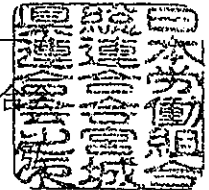 日本労働組合
総連合会宮城
県連合会
合